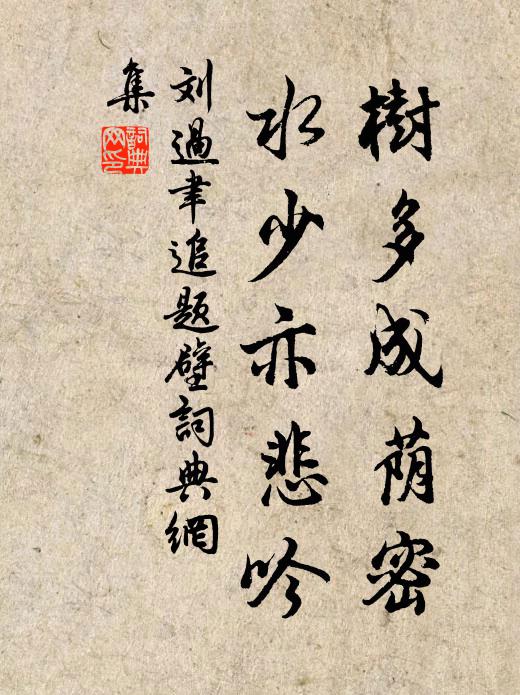 樹多成蔭密
水少亦悲吟
刘過聿追題壁詞典網
集
詞典网印